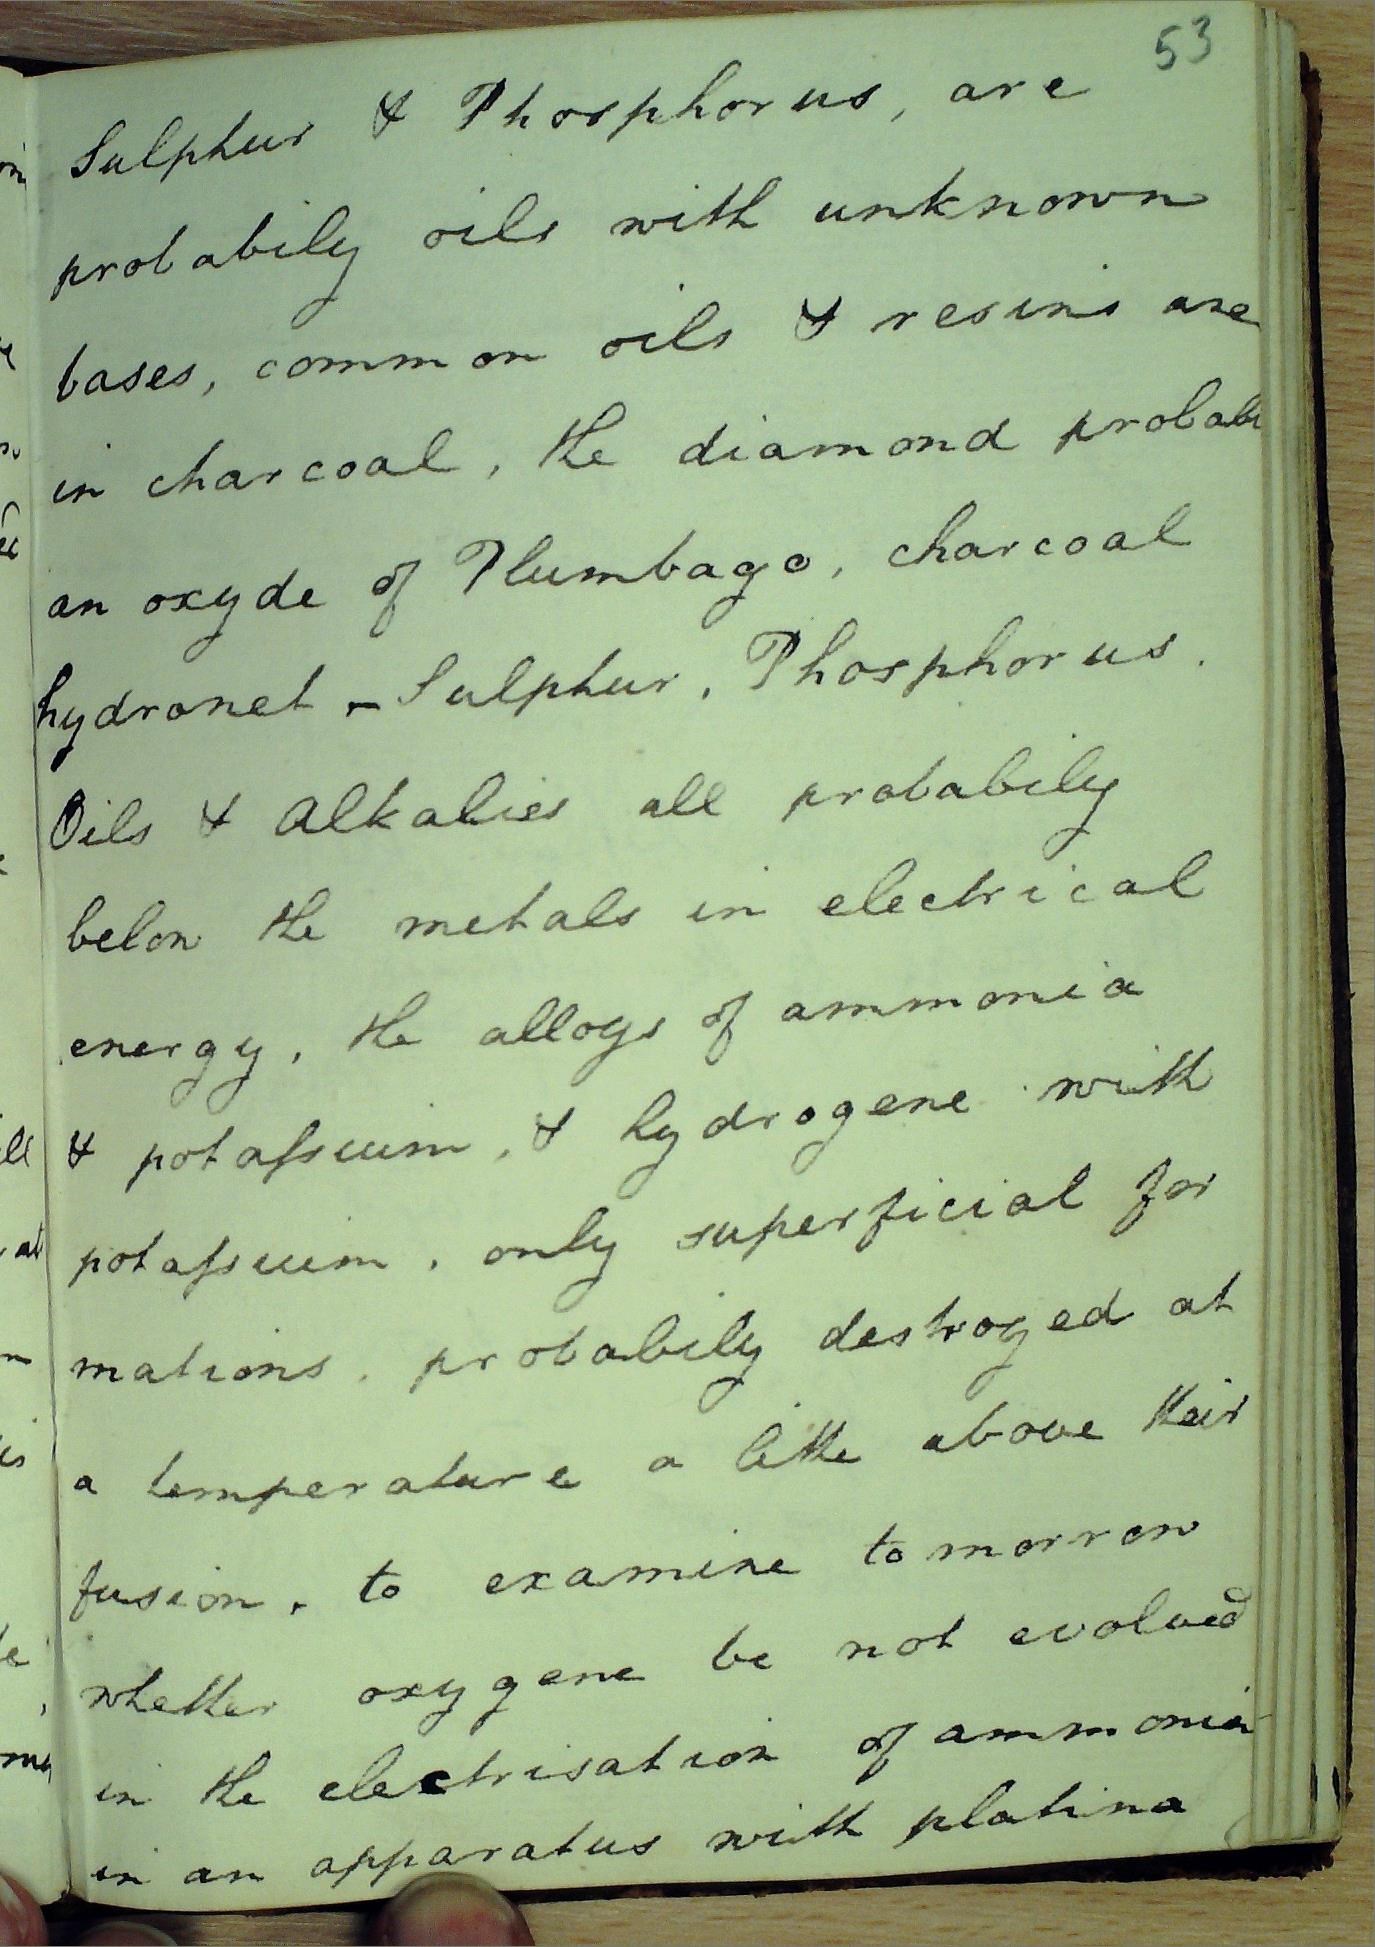 53
Sulphur & Phosphorus, are
probabily oils with unknown
bases, common oils & resins are
in charcoal, the diamond probab
an oxyde of Plumbago, charcoal
hydronet - Sulphur, Phosphorus.
Oils & Alkalies all probabily
below the metals in electrical
energy, the alloys of ammonia
& potassium, & hydrogene with
potassium, only superficial for
mations, probabily destroyed at
a temperature a little above their
fusion, to examine tomorrow
whether oxygene be not evolved
in the electrisation of ammonia
in an apparatus with platina